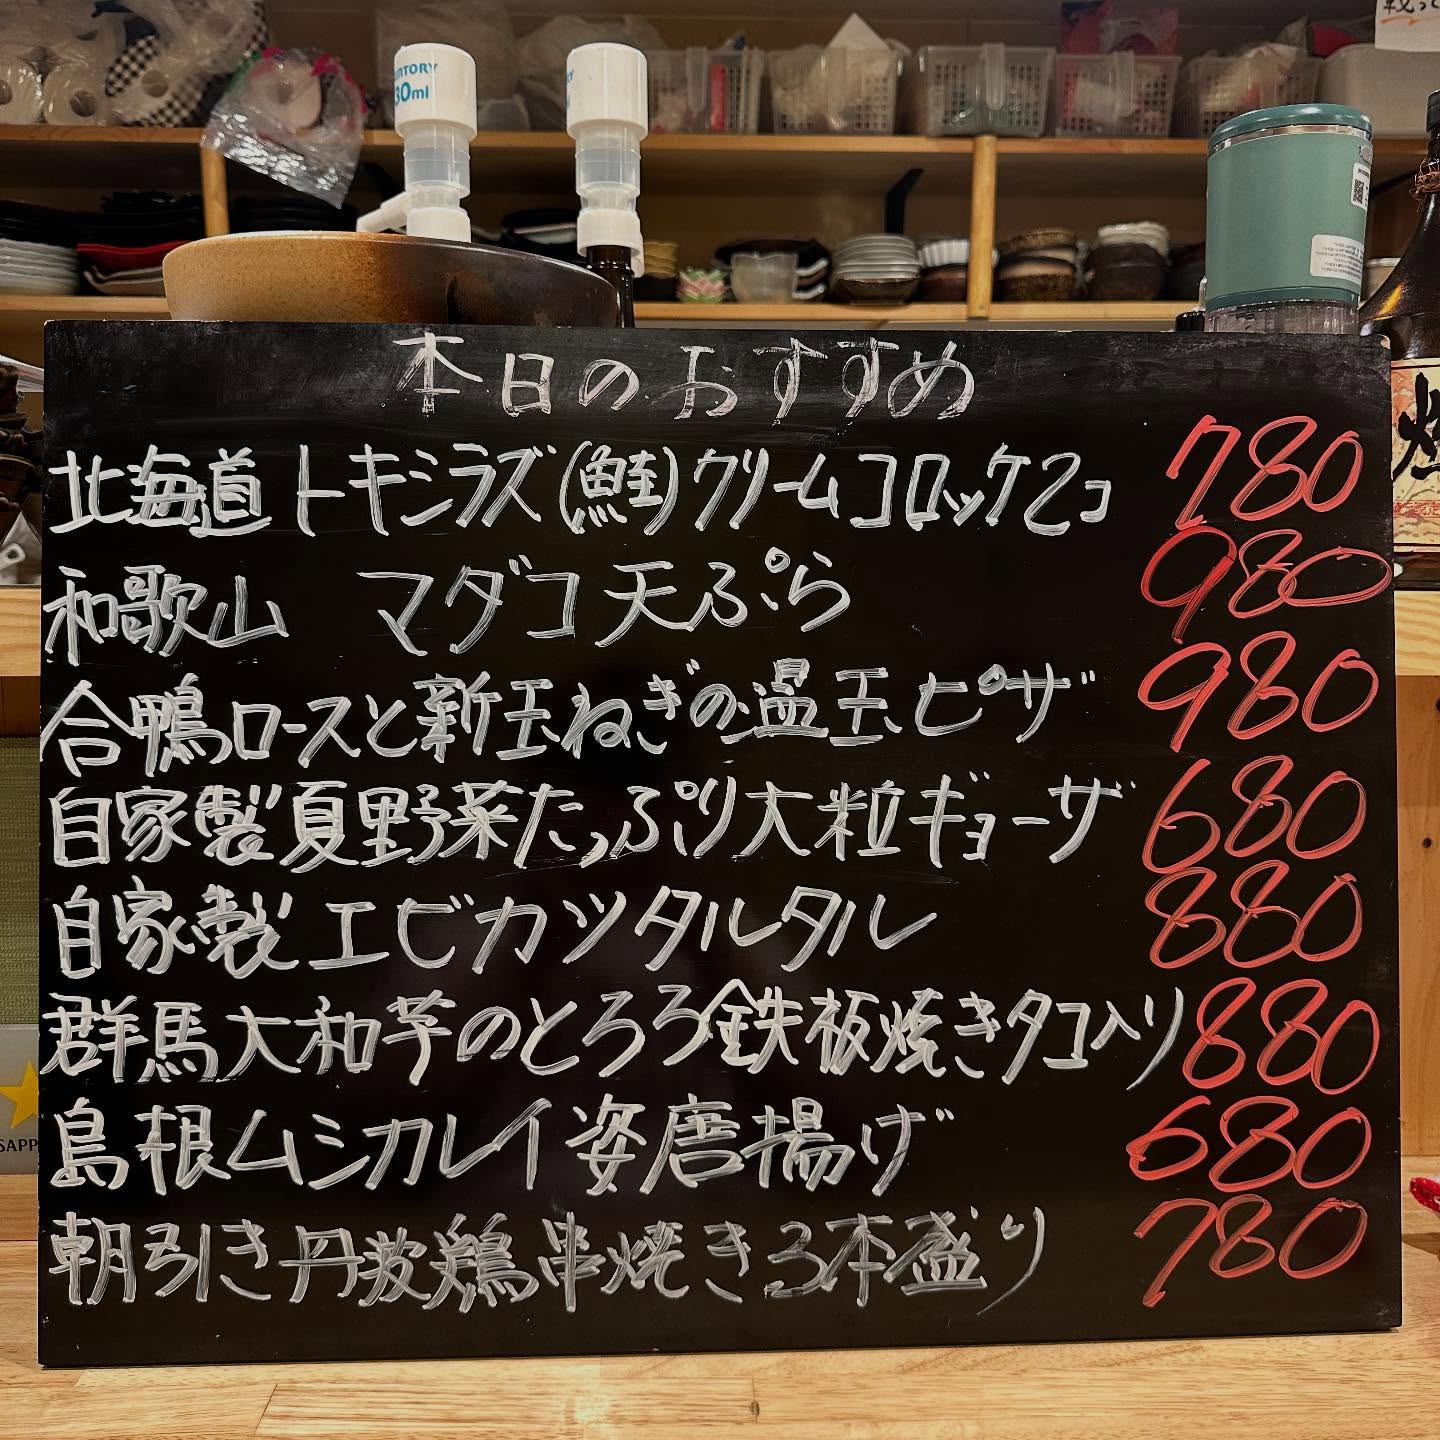 SUNTORY
30ml
本日のおすすめ
北海道 トキシラズ(鮭)クリームコロッケ2コ 780
和歌山 マダコ天ぷら 980
合鴨ロースと新玉ねぎの温玉ピザ 980
自家製夏野菜たっぷり大粒ギョーザ 680
自家製エビカツタルタル 880
群馬大和芋のとろろ鉄板焼きタコ入り 880
島根ムシカレイ姿唐揚げ 680
朝引き丹波鶏串焼き3本盛り 780
SAPP